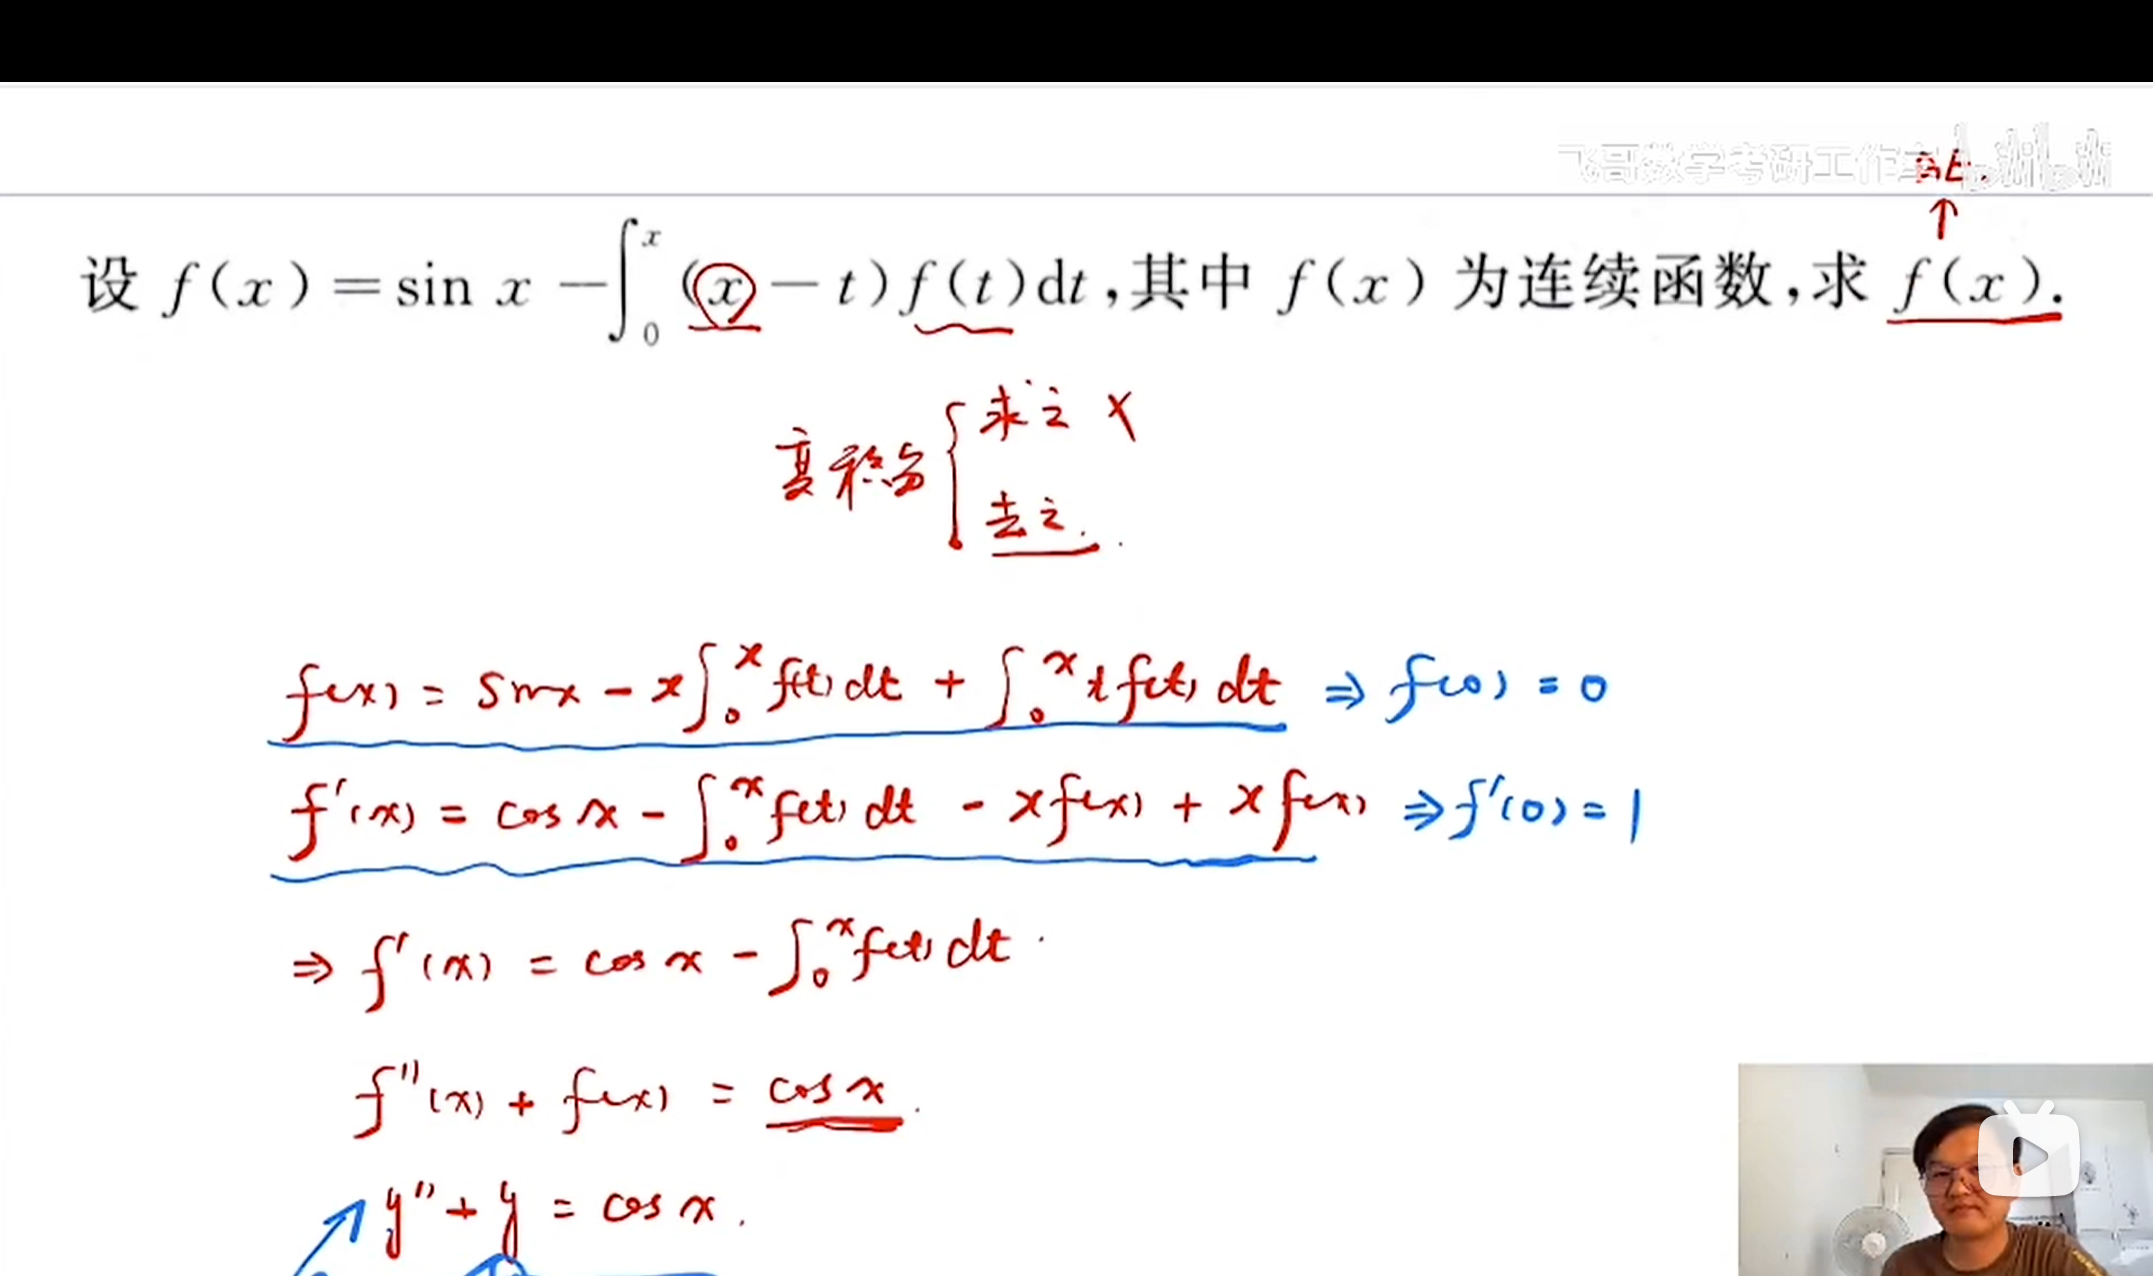 飞哥数学考研工作
设 f(x)=sin x −∫₀ˣ (x−t)f(t)dt,其中 f(x) 为连续函数,求 f(x).
变积分 { 求之 ×
去之.
f(x) = sinx − x∫₀ˣ f(t)dt + ∫₀ˣ t f(t) dt ⇒ f(0) = 0
f′(x) = cos x − ∫₀ˣ f(t) dt − x f(x) + x f(x) ⇒ f′(0) = 1
⇒ f′(x) = cos x − ∫₀ˣ f(t) dt
f″(x) + f(x) = cos x.
y″ + y = cos x.